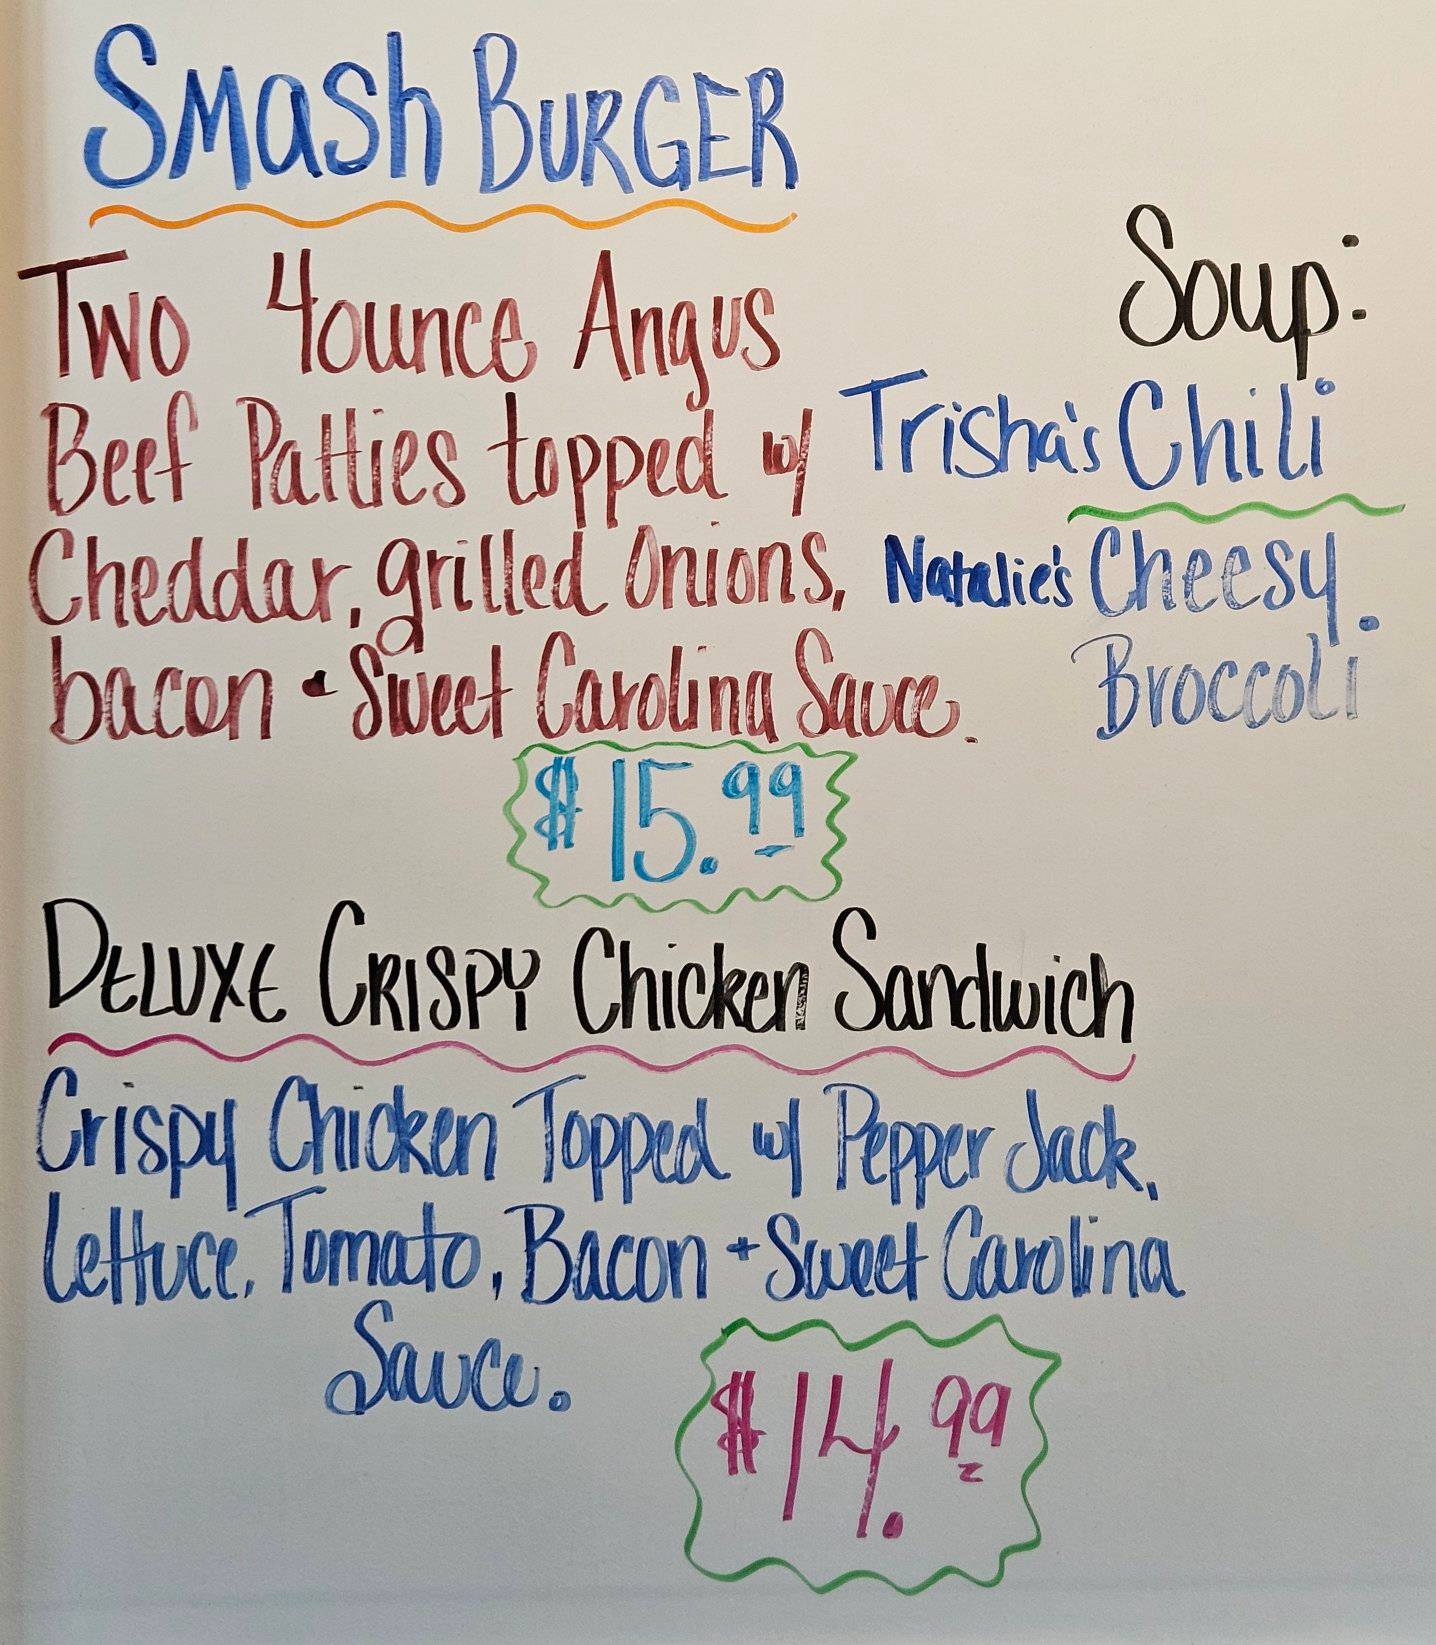 Smash BURGER
Two 4ounce Angus
Beef Patties topped w/
Cheddar, grilled Onions,
bacon + Sweet Carolina Sauce.
$15.99
Soup:
Trisha's Chili
Natalie's Cheesy
Broccoli
DELUXE CRISPY Chicken Sandwich
Crispy Chicken Topped w/ Pepper Jack,
Lettuce, Tomato, Bacon + Sweet Carolina
Sauce.
$14.99